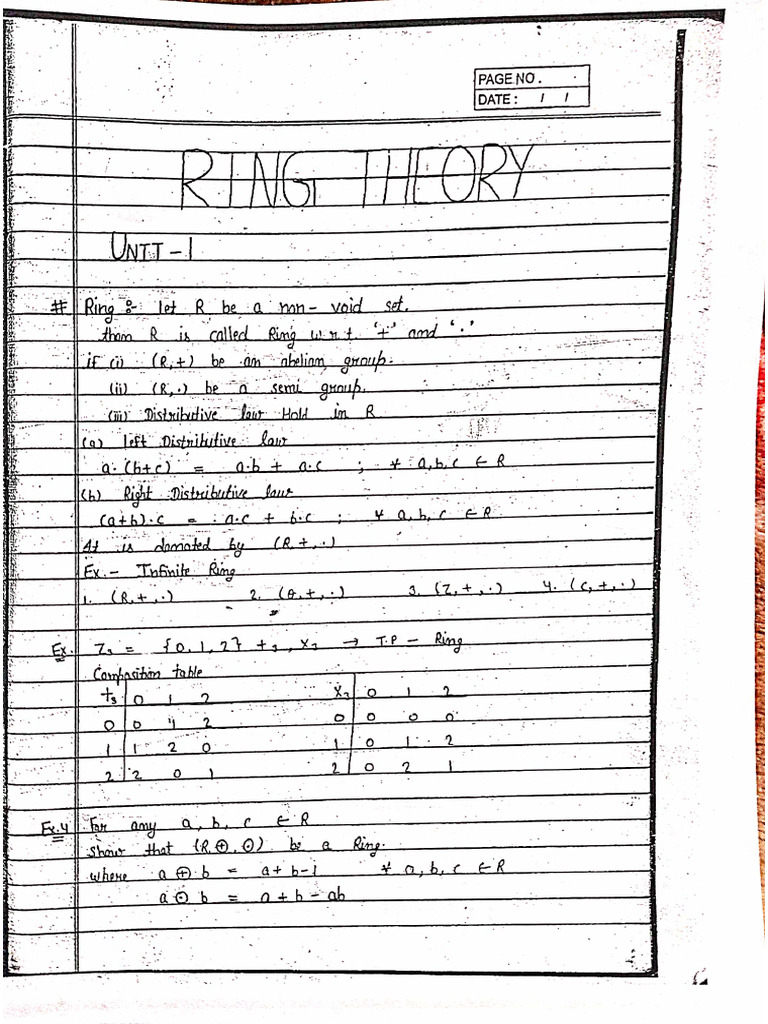 PAGE NO.
DATE: / /
RING THEORY
UNIT-1
# Ring :- let R be a non-void set.
then R is called Ring w.r.t '+' and '.'
if (i) (R,+) be an abelian group.
(ii) (R,.) be a semi group.
(iii) Distributive law Hold in R
(a) left Distributive law
a.(b+c) = a.b + a.c ; ∀ a,b,c ∈ R
(b) Right Distributive law
(a+b).c = a.c + b.c ; ∀ a,b,c ∈ R
It is denoted by (R,+,.)
Ex.- Infinite Ring
1. (R,+,.) 2. (Q,+,.) 3. (Z,+,.) 4. (C,+,.)
Ex. Z₃ = {0,1,2} +₃, ×₃ → T.P - Ring
Composition table
+₃ 0 1 2 ×₃ 0 1 2
0 0 1 2 0 0 0 0
1 1 2 0 1 0 1 2
2 2 0 1 2 0 2 1
Ex.4 For any a, b, c ∈ R
show that (R,⊕,⊙) be a Ring.
where a ⊕ b = a + b-1 ∀ a,b,c ∈ R
a ⊙ b = a + b - ab